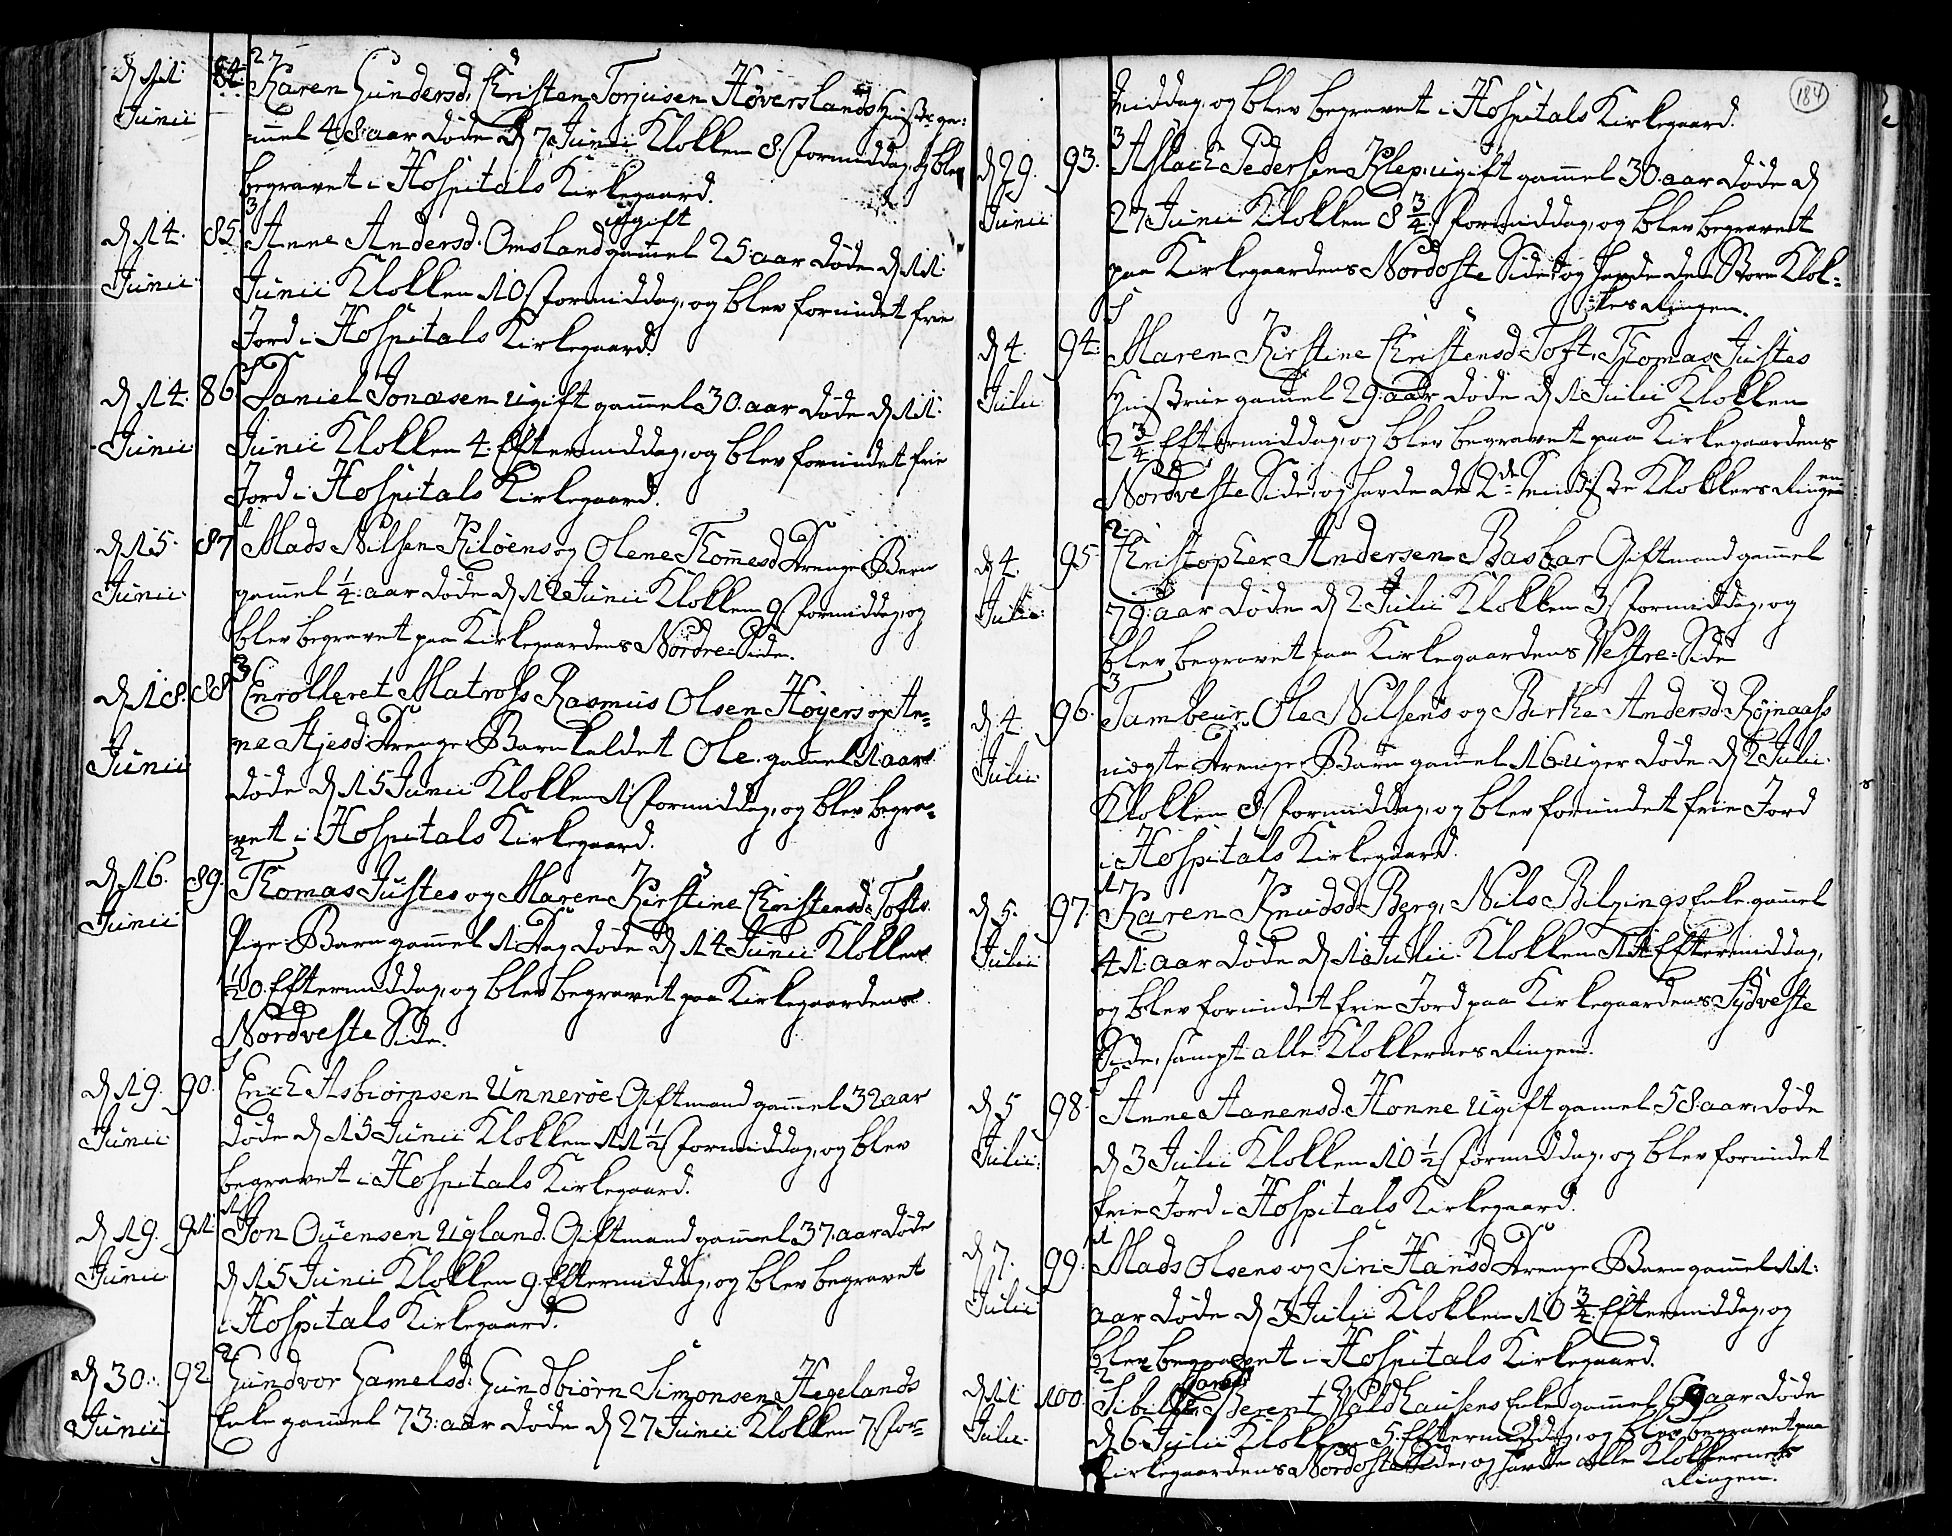 d 11: 84. Karen Gundersd, Christen Torjusen Höverslands Hustr ga:
Junii mel 48: aar døde d 7 Junii Klokken 8 formiddag, og blev
begravet i Hospitals Kirkegaard.
3
ugift
d 14. 85 Anne Andersd. Omsland gamel 25: aar døde d 11:
Junii Junii Klokken 10 formiddag, og blev forundet frie
Jord i Hospitals Kirkegaard.
d 14. 86 Daniel Jonasen ugift gammel 30. aar døde d 11.
Junii Junii Klokken 4. Eftermiddag, og blev forundet frie
Jord i Hospitals Kirkegaard.
1
d 15. 87 Mads Nilsen Kiløens og Olene Thommesd Drenge Barn
Junii. gammel 1/4. aar døde d 12 Junii Klokken 9 formiddag, og
blev begravet paa Kirkegaardens Nordre Side.
3
d 18. 88 Enrolleret Matross Rasmus Olsen Höyers og An=
Junii ne Ajesd: Drenge Barn kaldet Ole. gammel 1. aar
døde d 15 Junii Klokken 1 formiddag, og blev begra=
vet i Hospitals Kirkegaard.
2
d 16. 89. Thomas Justes og Maren Kirstine Christensd: Tofts
Junii Pige Barn gammel 1 Dag døde d 14 Junii Klokken
1/2 10. Eftermiddag, og blev begravet paa Kirkegaardens
Nordveste Side.
d 19. 90. Erich Asbiørnsen Unnerøe Giftmand gammel 32 aar
Junii døde d 15 Junii Klokken 11 1/2 formiddag, og blev
begravet i Hospitals Kirkegaard.
1
d 19. 91. Jon Ouensen Ugland. Giftmand gammel 37. aar døde
Junii d 15 Junii Klokken 9. Eftermiddag, og blev begravet
i Hospitals Kirkegaard.
2
d 30. 92 Gundvor Gamelsd: Gundbiørn Simonsen Hegelands
Junii Enke gammel 73: aar døde d 27 Junii Klokken 7 for=
184
middag, og blev begravet i Hospitals Kirkegaard.
3
d 29. 93. Aslach Pedersen Klep, ugift gammel 30. aar døde d
Junii 27 Junii Klokken 8 3/4. formiddag, og blev begravet
paa Kirkegaardens Nordoste Side, og havde den Store Klok=
kes Ringen.
d 4. 94. Maren Kirstine Christensd Toft, Thomas Justes
Julii Hustrue gamel 29. aar døde d 1 Julii Klokken
2 3/4. Eftermiddag, og blev begravet paa Kirkegaardens
Nordveste Side, og havde de 2de mindste Klokkers Ringen
2
d 4. 95 Christopher Andersen Basbar Giftmand gammel
Julii. 79: aar døde d 2 Julii Klokken 3 formiddag, og
blev begravet paa Kirkegaardens Vestre Side
3
d. 4. 96. Tambeur Ole Nilsens og Birthe Andersd. Röjnaass
Julii. uægte Drenge Barn gammel 16 uger døde d 2 Julii.
Klokken 8 formiddag, og blev forundet frie Jord
i Hospitals Kirkegaard.
d 5. 97. Karen Knudsd: Berg, Nils Bilzings Enke gammel
Julii 41: aar døde d 1 Julii. Klokken 11 Eftermiddag,
og blev forundet frie Jord paa Kirkegaardens Sydveste
Side, sampt alle Klokkernes Ringen.
d 5 98 Anne Aanensd. Honne ugift gamel 58: aar, døde
Julii. d 3 Julii Klokken 10 1/2 formiddag, og blev forundet
frie Jord i Hospitals Kirkegaard.
1
d 7. 99. Mads Olsens og Siri Hansd Drenge Barn gammel 11:
Julii aar døde d 3 Julii Klokken 10 3/4. Eftermiddag, og
blev begravet i Hospitals Kirkegaard.
2
d 11 100. Sibille Berent Waldhausens Enke gammel 69 aar døde
Julii. d 6 Julii Klokken 5 Eftermiddag, og blev begravet paa
Kirkegaardens Nordoste Side, og havde alle Klokkernes
Ringen.